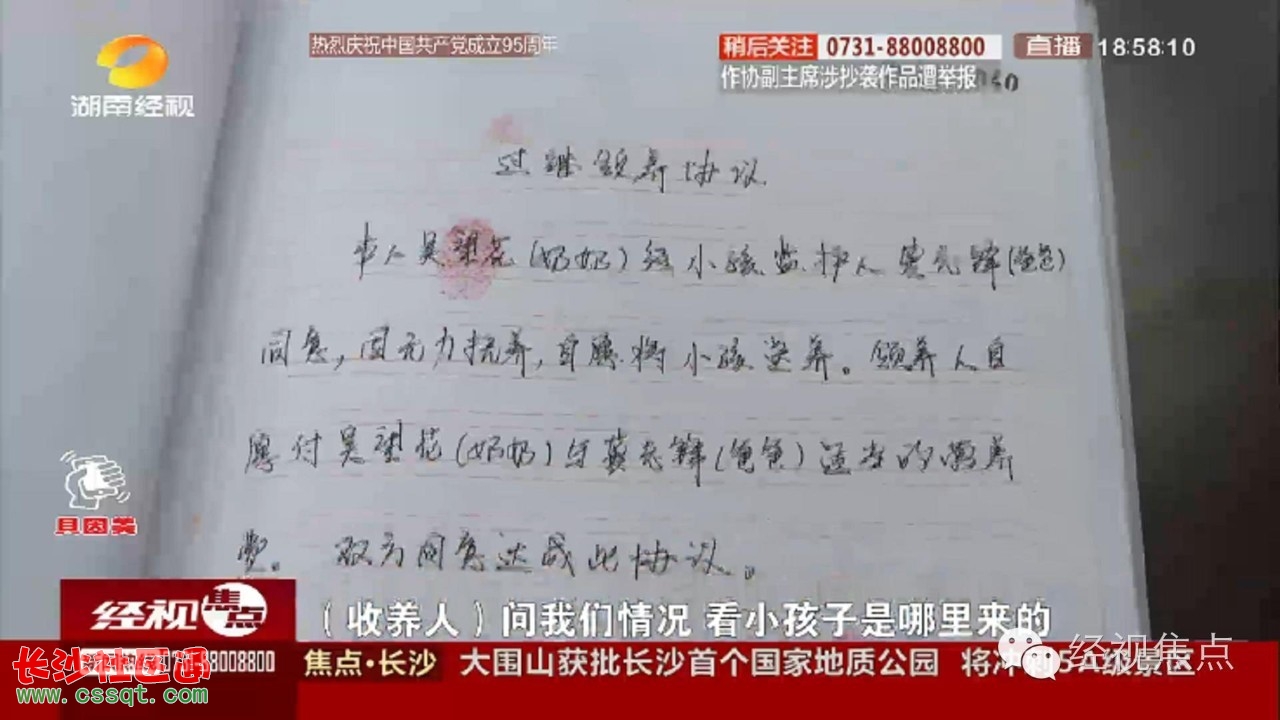 湖南经视
热烈庆祝中国共产党成立95周年
稍后关注 0731-88008800 直播 18:58:10
作协副主席涉抄袭作品遭举报
过继领养协议
本人吴望花(奶奶)经小孩监护人 先锋(爸爸)
同意,因无力抚养,自愿将小孩送养。领养人自
愿付吴望花(奶奶)与 先锋(爸爸)适当的 养
费。 双方同意达成此协议。
经视焦点
(收养人)问我们情况 看小孩子是哪里来的
88008800 焦点·长沙 大围山获批长沙首个国家地质公园 将冲 5A级景区
经视焦点
长沙社区通
www.cssqt.com